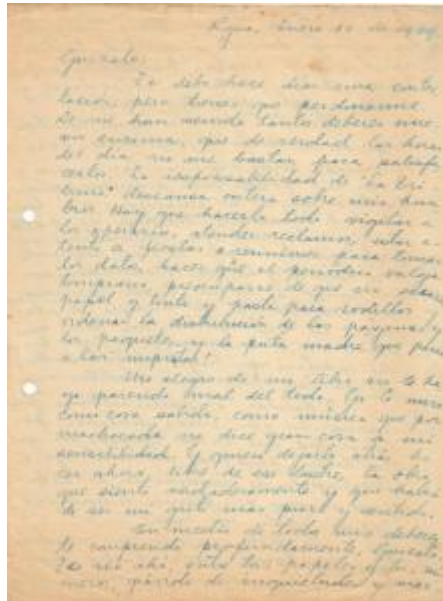 Enero 10 de 19
Gonzalo:
Te debo hace días una contes
tación, pero tienes que perdonarme.
Se me han venido tantos deberes nue
encima, que de verdad las horas
del día no me bastan para satisfa
cerlos. La responsabilidad de "La Tri
buna" descansa entera sobre mis hom
bros. Hay que hacerlo todo: vigilar a
los operarios, atender reclamos, estar a
tento a fiestas o reuniones para tomar
los datos, hacer que el periódico salga
temprano, preocuparse de que no
papel y tinta y pasta para rodillos
ordenar la distribución de las páginas,
los paquetes, y la puta madre que parió
a las imprentas!
Me alegro de que mi libro no te ha
ya parecido mal del todo. Yo lo miro
como cosa salida, como música que por
machacada no dice gran cosa a mi
sensibilidad. Y quiero dejarlo atrás,
ahora, libre de ese lastre, la obra
que siento y que habrá
de ser un grito más puro y sentido.
En medio de todos mis deberes
te comprendo profundamente, Gonzalo.
Te veo ahí, entre los papeles y
de inquietudes y